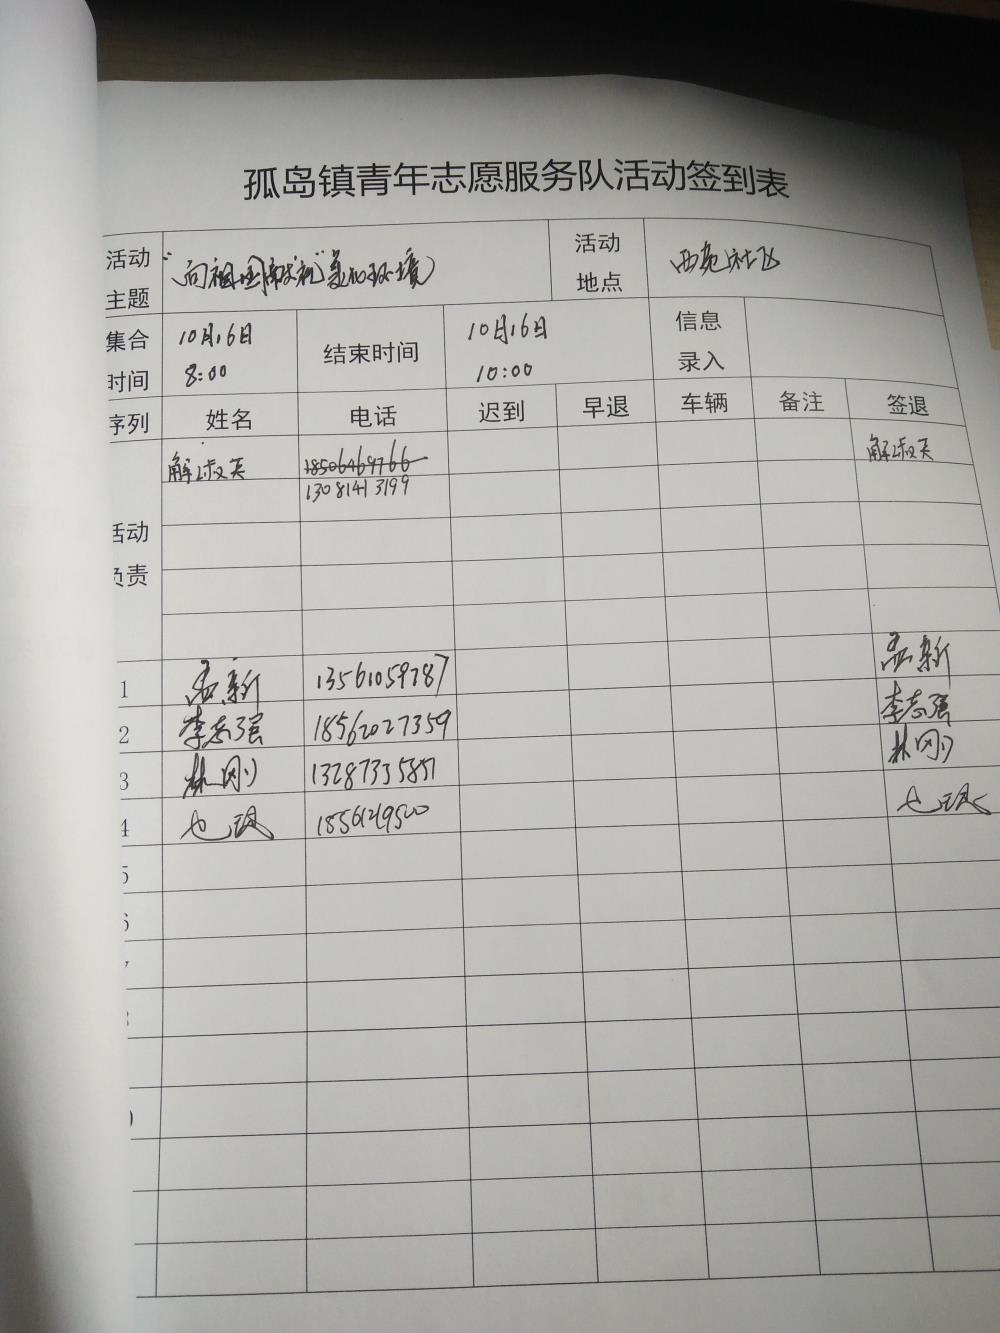 孤岛镇青年志愿服务队活动签到表
活动主题 "向祖国献礼"美化环境 活动地点 西苑社区
集合时间 10月16日 8:00 结束时间 10月16日 10:00 信息录入
序列 姓名 电话 迟到 早退 车辆 备注 签退
活动负责 解淑英 18506469766 解淑英
13081413199
1 孟新 13561059787 孟新
2 李志强 18562027359 李志强
3 林刚 13287335851 林刚
4
5
6